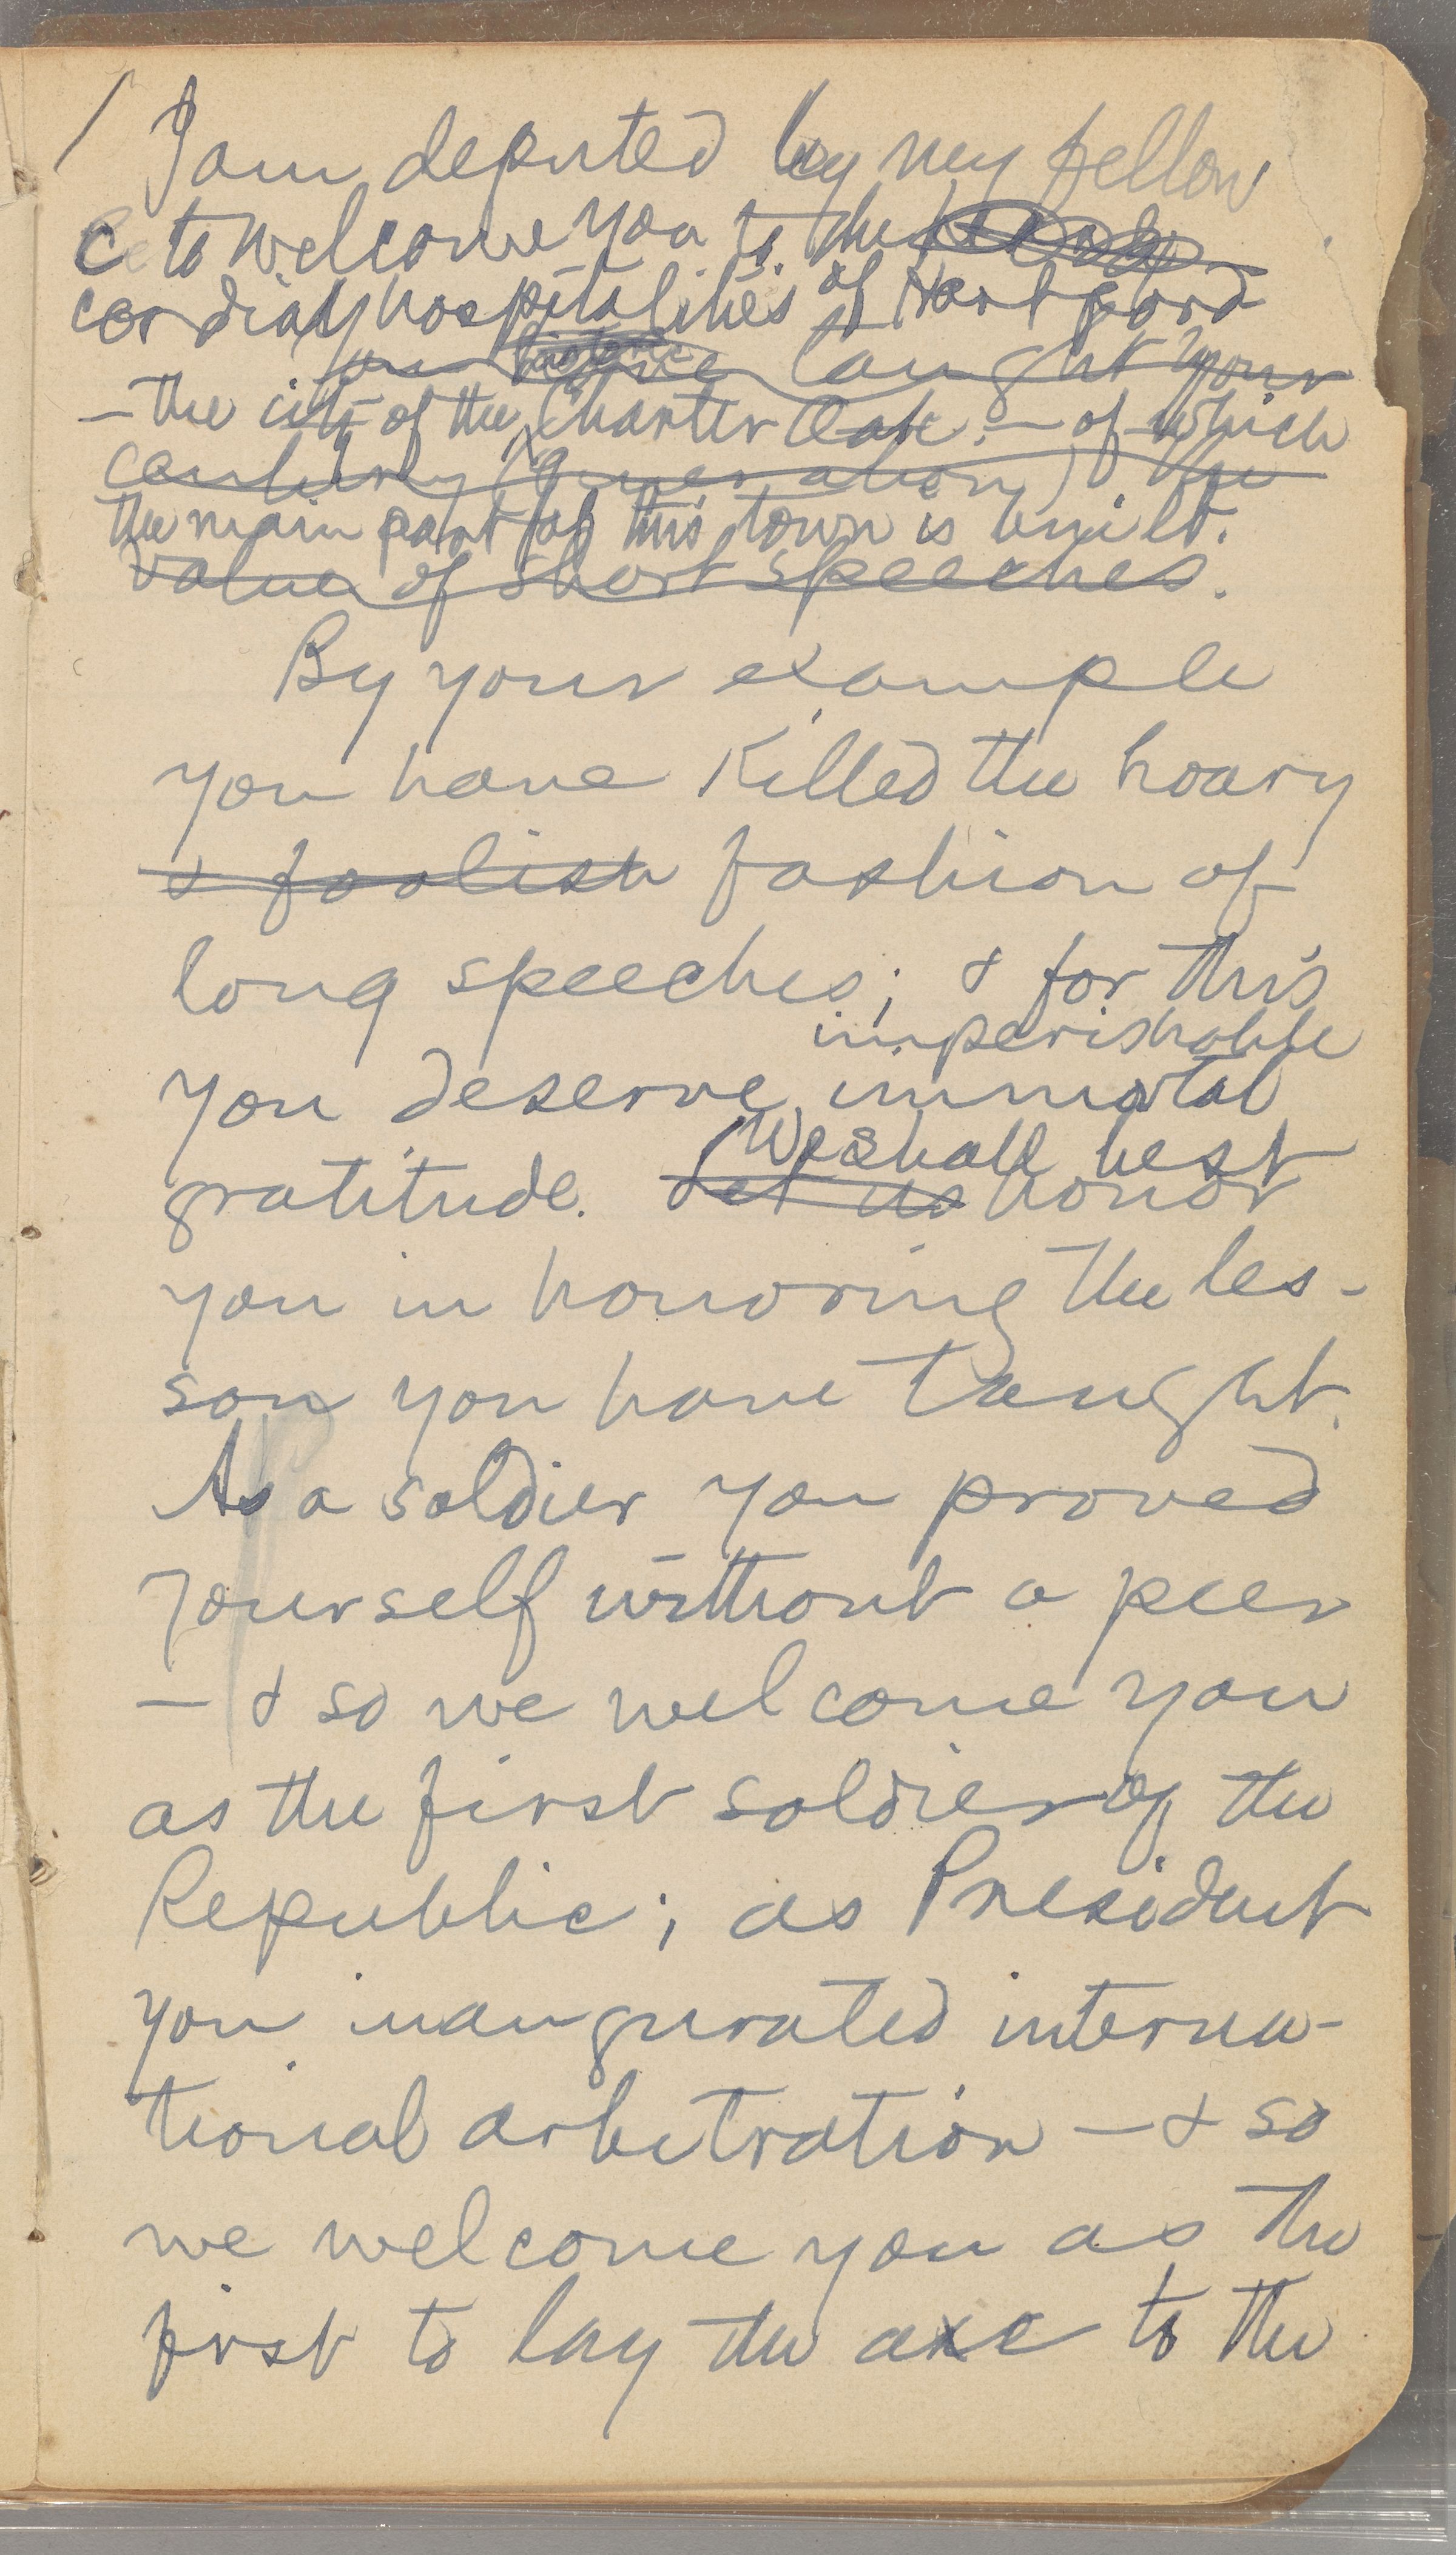 I am deputed by my fellow
c to welcome you to the
cordial hospitalities of Hartford
You have taught your
— the city of the Charter Oak — of which
century (generation) the
the main part of this town is built.
value of short speeches.
By your example
you have killed the hoary
& foolish fashion of
long speeches; & for this
imperishable
you deserve immortal
We shall best
gratitude. Let us honor
you in honoring the les-
son you have taught.
As a soldier you proved
yourself without a peer
— & so we welcome you
as the first soldier of the
Republic; as President
you inaugurated interna-
tional arbitration — & so
we welcome you as the
first to lay the axe to the